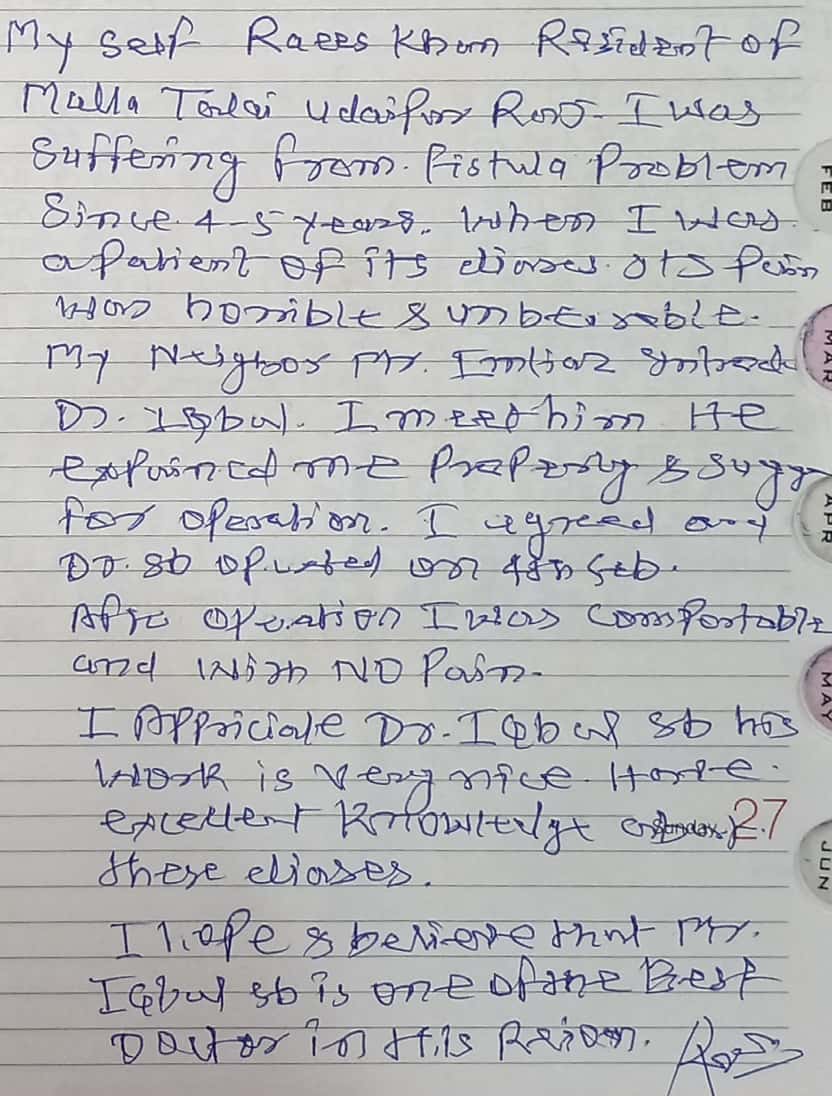 My self Raees Khan Resident of
Malla Talai Udaipur Raj. I was
Suffering from. fistula Problem
Since 4-5 years. When I was
a Patient of its diases. Its Pain
was horrible & unbearable.
My Neigbor Mr. Imtiaz
Dr. Iqbal. I meet him He
explained me Properly & Sugg
for operation. I agreed and
Dr. sb operated on 4th Feb.
After operation I was comfortable
and with NO Pain.
I Appriciate Dr. Iqbal sb his
work is very nice. He
excellent Knowledge Sunday 27
these diases.
I hope & believe that Mr.
Iqbal sb is one of the Best
Doctor in this
FEB
MAR
APR
MAY
JUN